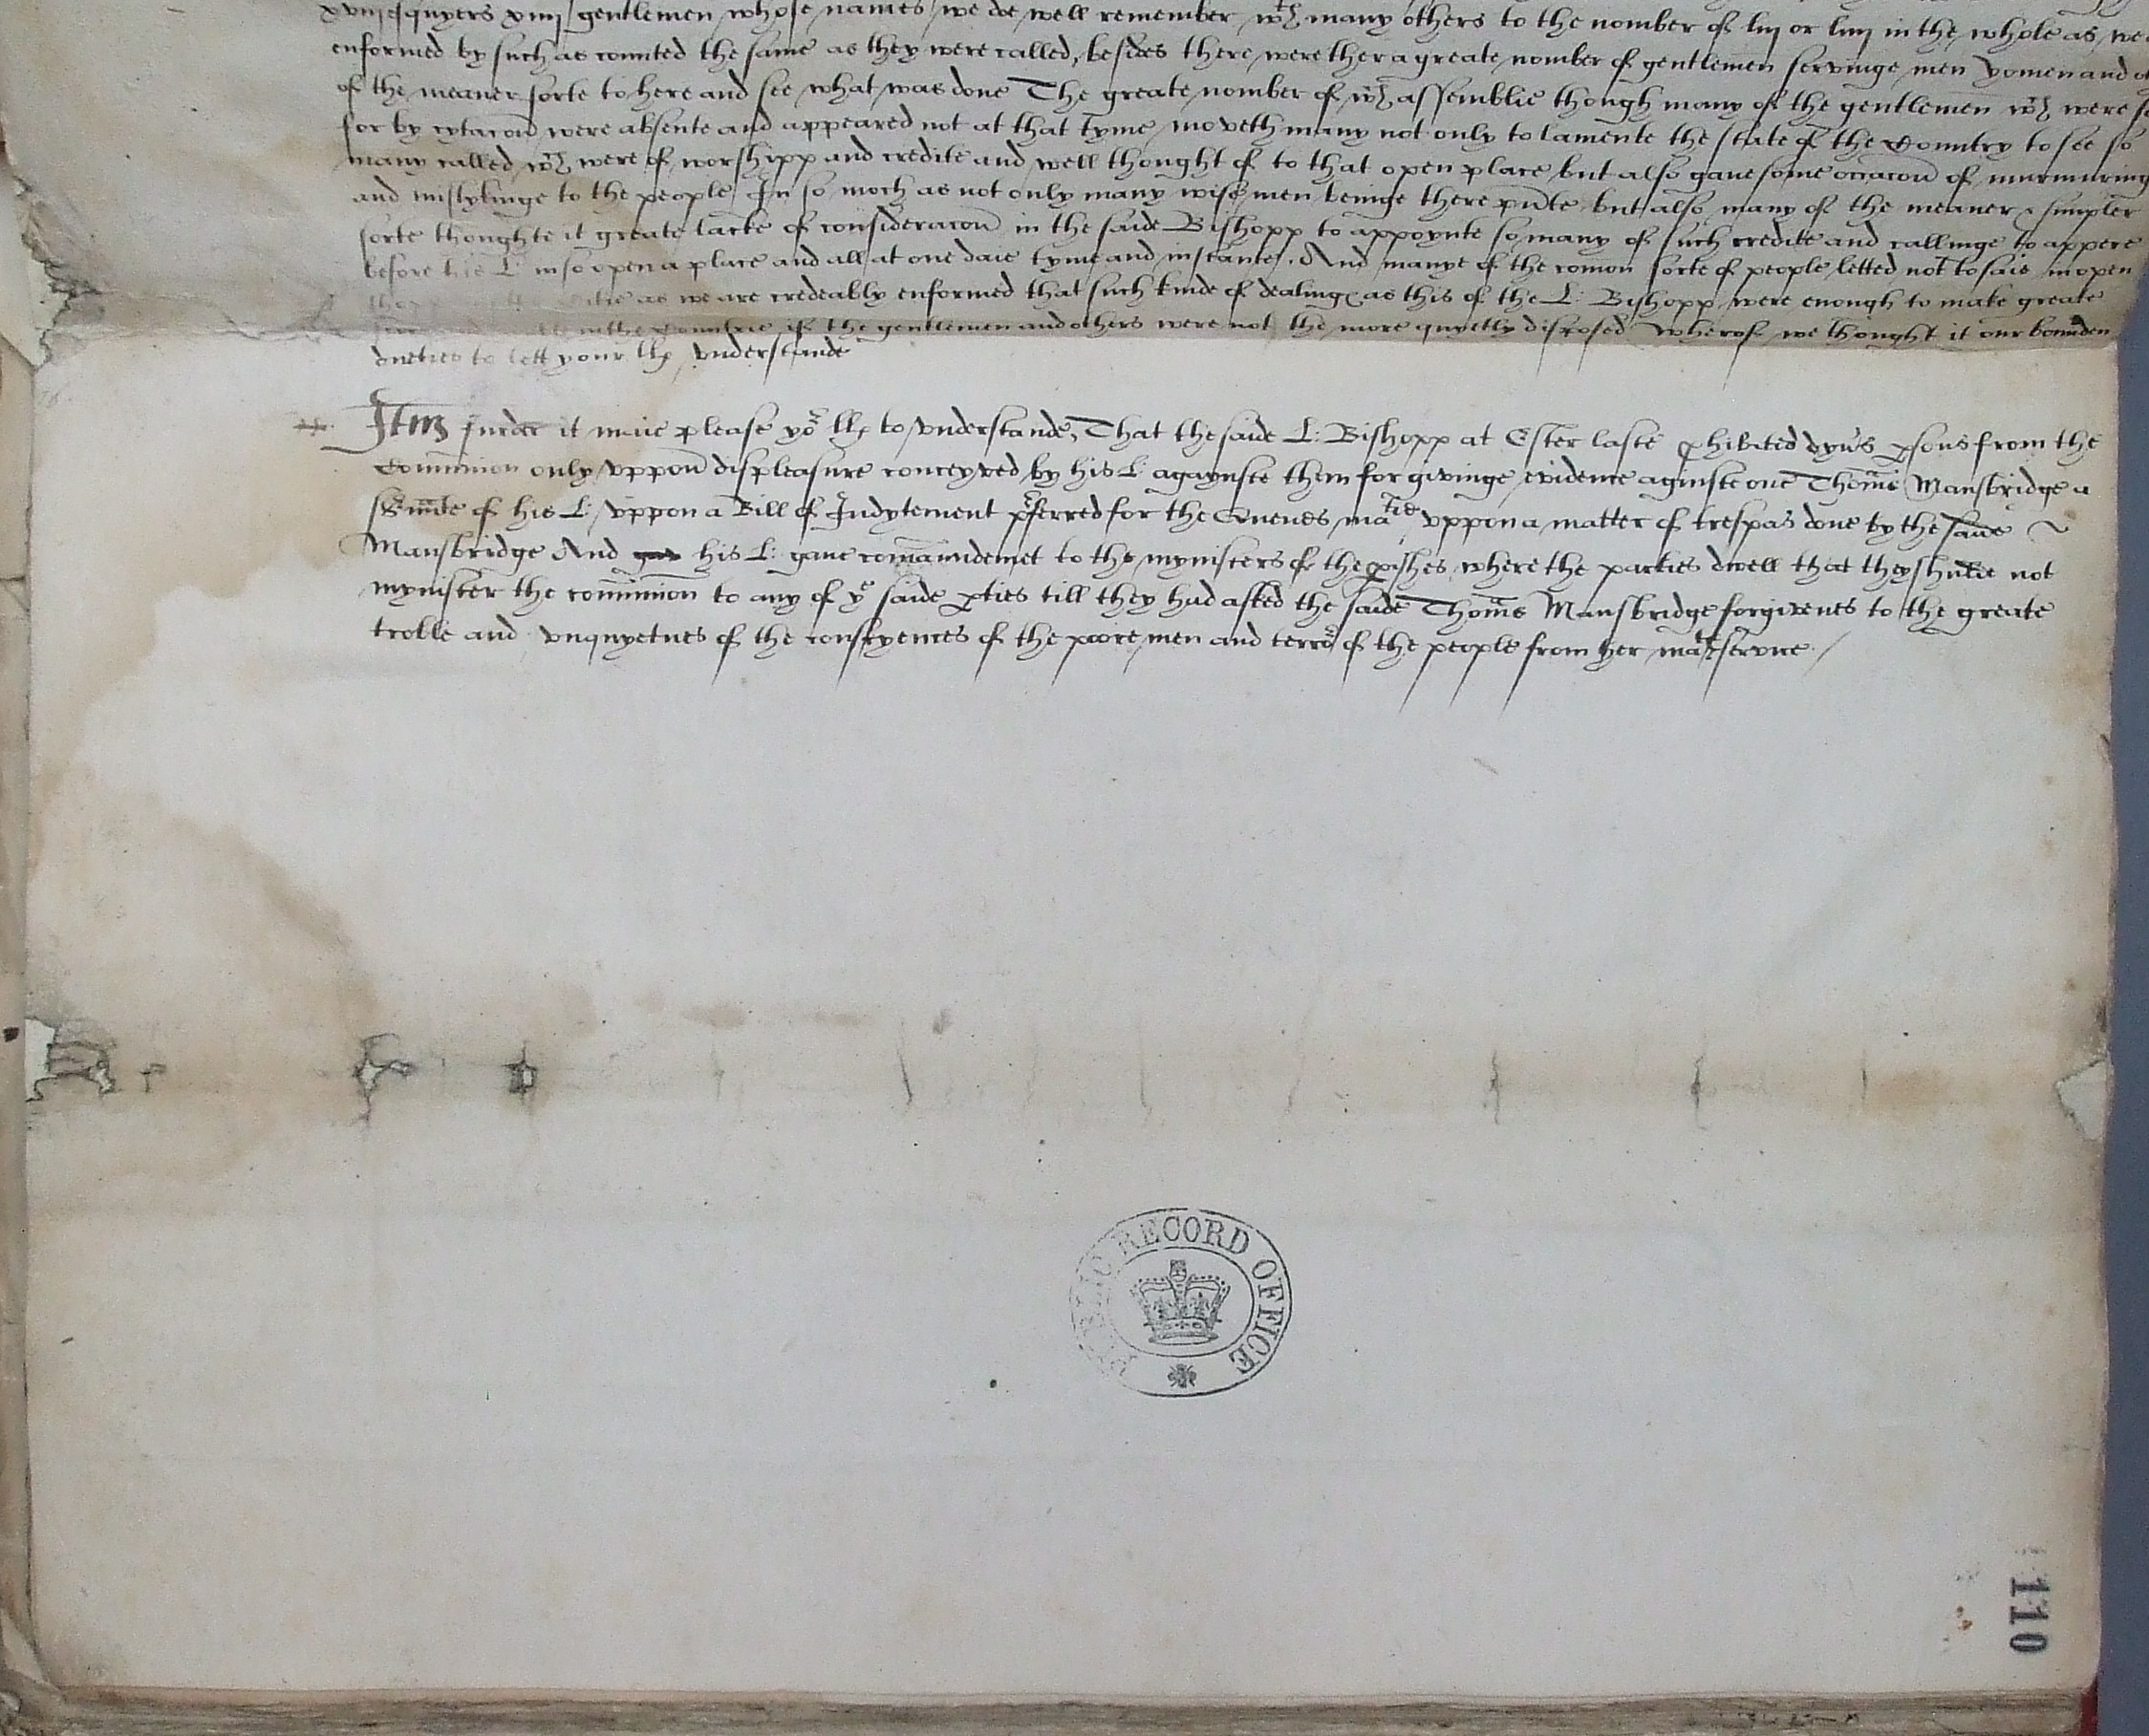 xviij esquyers xiiij gentlemen whose names we doe well remember wch many others to the nomber of liij or liiij in the whole as we
enformed by such as counted the same as they were called, besides there were ther a greate nomber of gentlemen servinge men yomen and
of the meaner sorte to here and see what was done The greate nomber of wch assemblie though many of the gentlemen wch were
for by cytacon were absente and appeared not at that tyme moveth many not only to lamente the state of the Country to see so
many called wch were of worshipp and credite and well thought of to that open place but also gave some occacon of murmuring
and mislykinge to the people In so moch as not only many wise men beinge there pnte but also many of the meaner & simpler
sorte thoughte it greate lacke of consideracon in the saide Bishopp to appoynte so many of such credite and callinge to appere
before his L: in so open a place and all at one daie tyme and instante. And manye of the comon sorte of people letted not to saie in open
as we are credeably enformed that such kinde of dealing as this of the L: Bishopp were enough to make greate
in the Countrie if the gentlemen and others were not the more quyetly disposed wherof we thought it our bounden
dueties to lett your llp understande
Itm furder it maie please yor llp to understande, That the saide L: Bishopp at Ester laste phibited dyvs psons from the
Commnion only uppon displeasure conceyved by his L: agaynste them for givinge evidence aginste one Thoms Mansbridge a
svnte of his L: uppon a Bill of Indytement pferred for the Quenes matie uppon a matter of trespas done by the saide ~
Mansbridge And his L: gave comaundemet to the mynisters of the pishes where the parties dwell that they shulde not
mynister the comunion to any of ye saide pties till they had asked the saide Thoms Mansbridge forgivenes to the greate
trolle and unquyetnes of the conscyences of the poore men and terror of the people from her mats service /
PUBLIC RECORD OFFICE
110